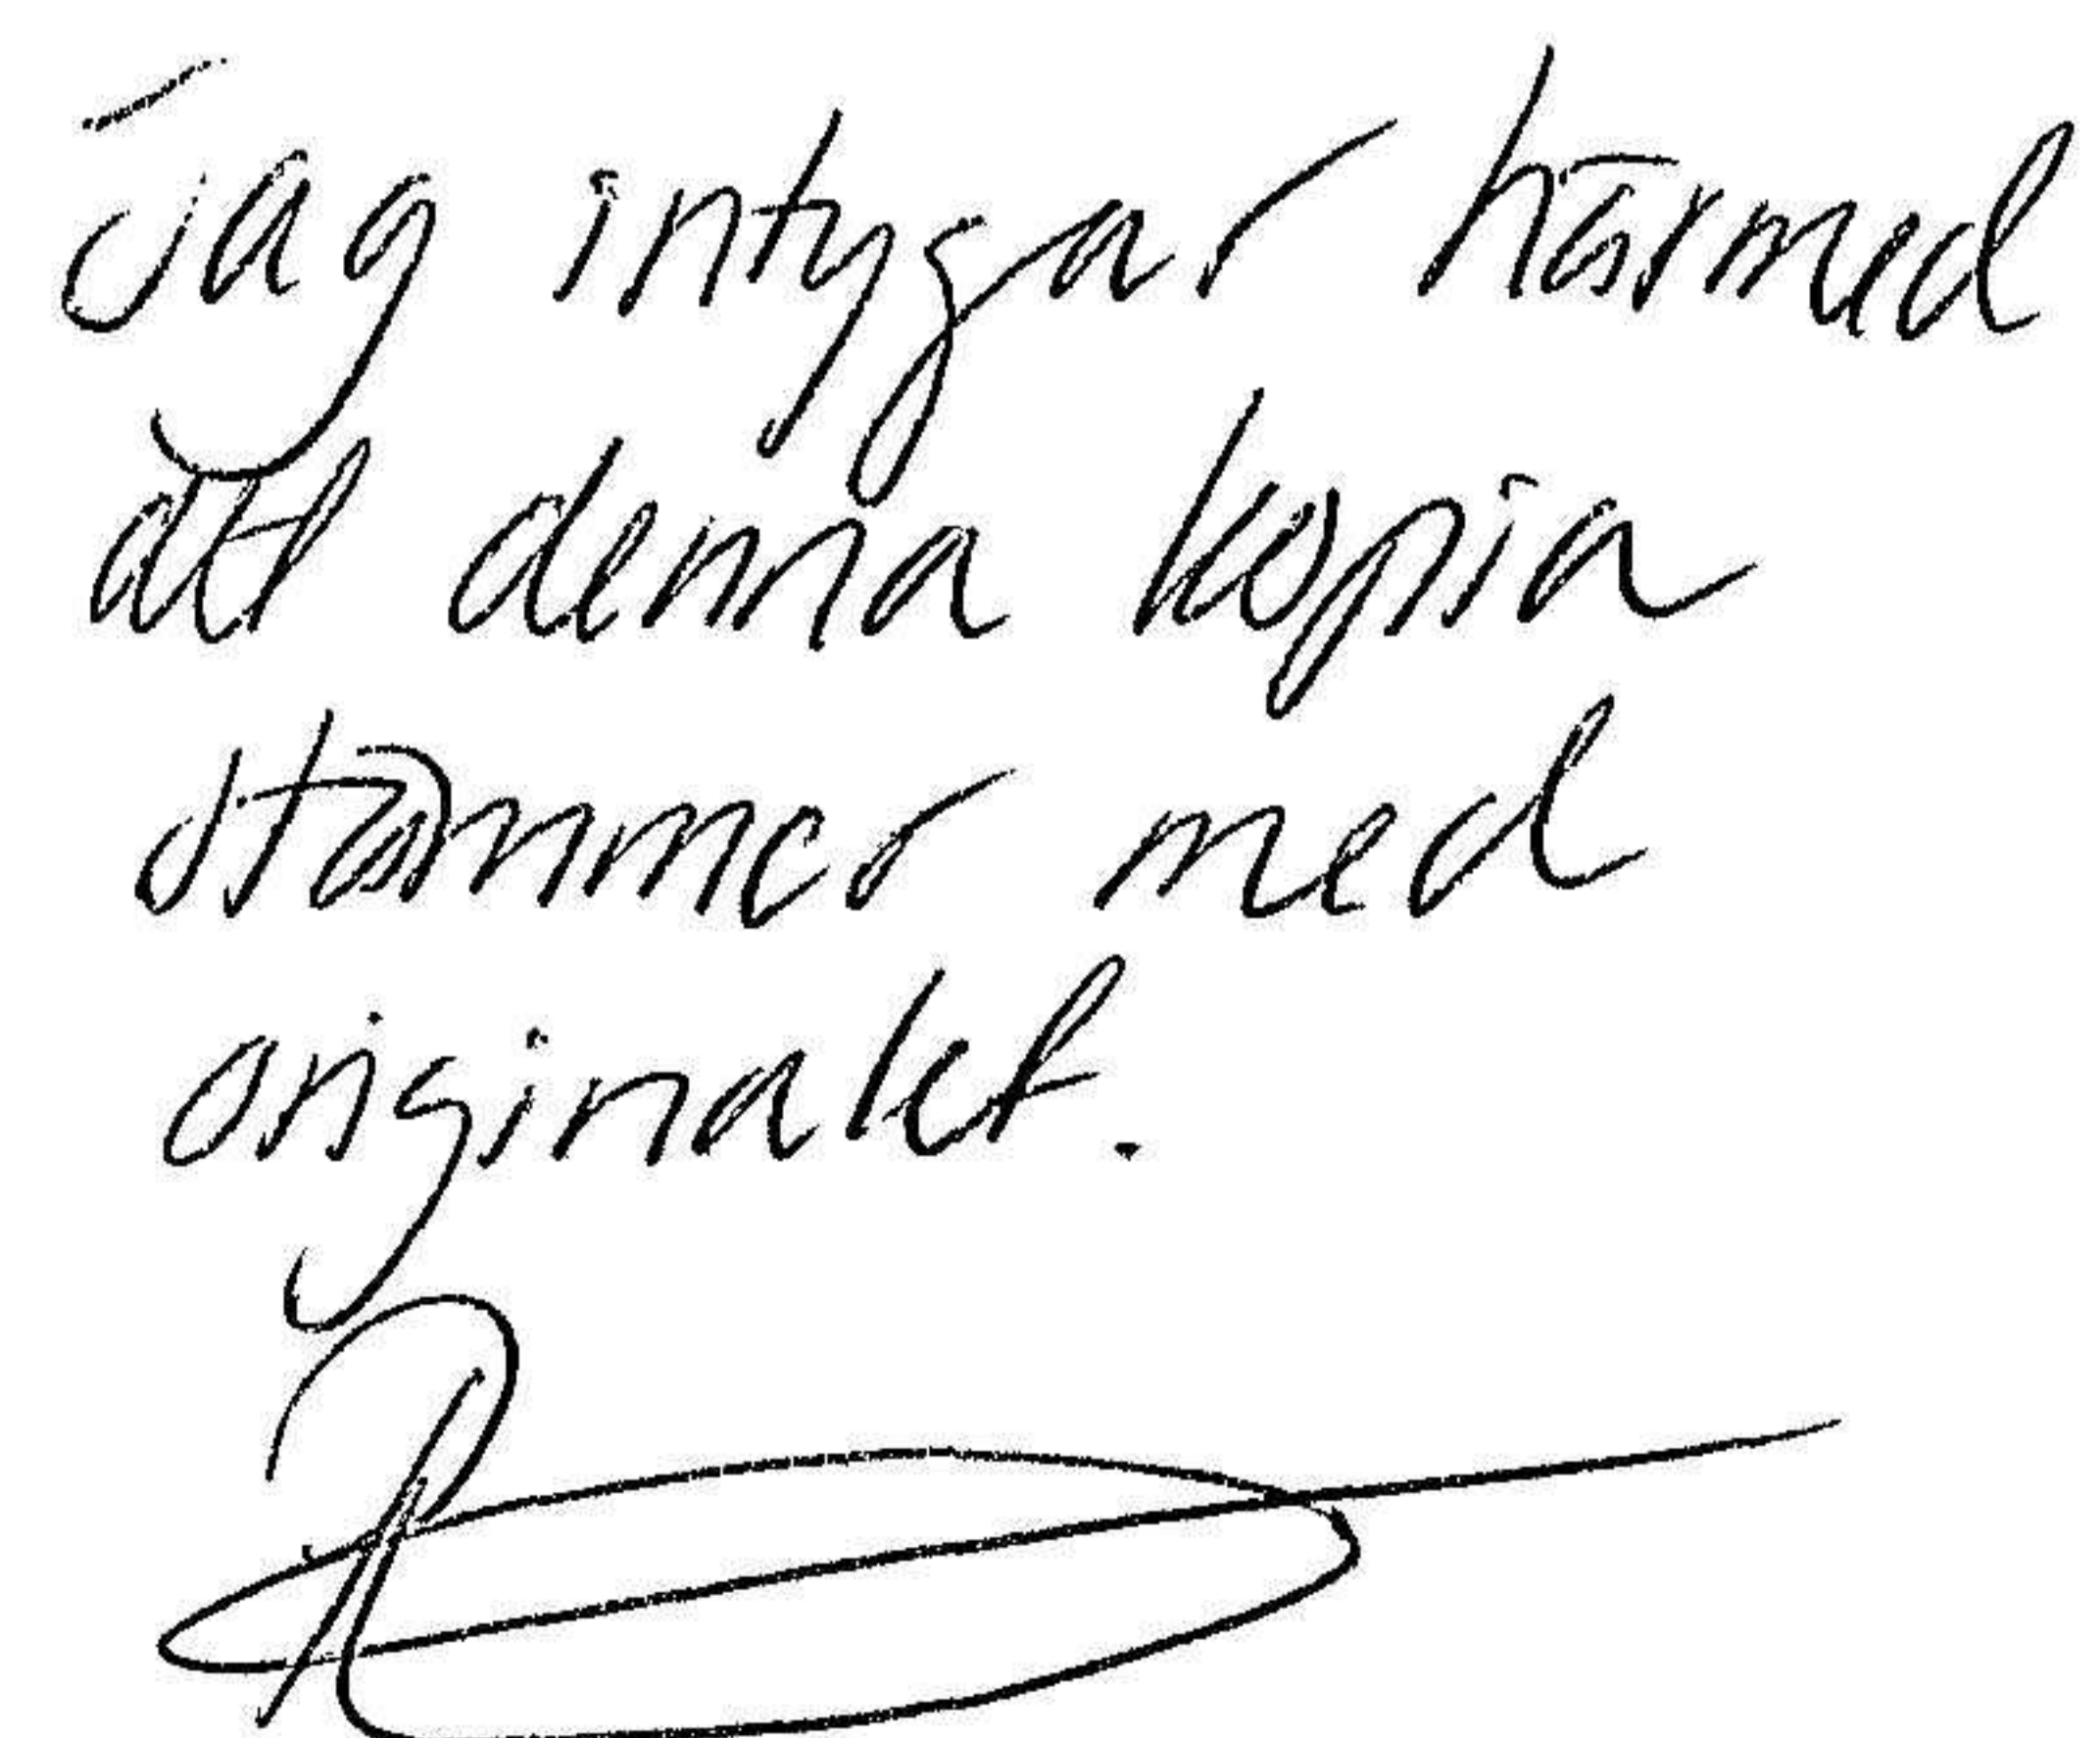 Jag intygar härmed
att denna kopia
stämmer med
originalet.